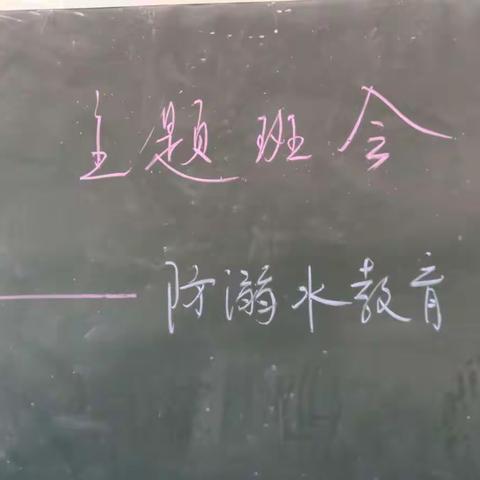 主题班会
——防溺水教育